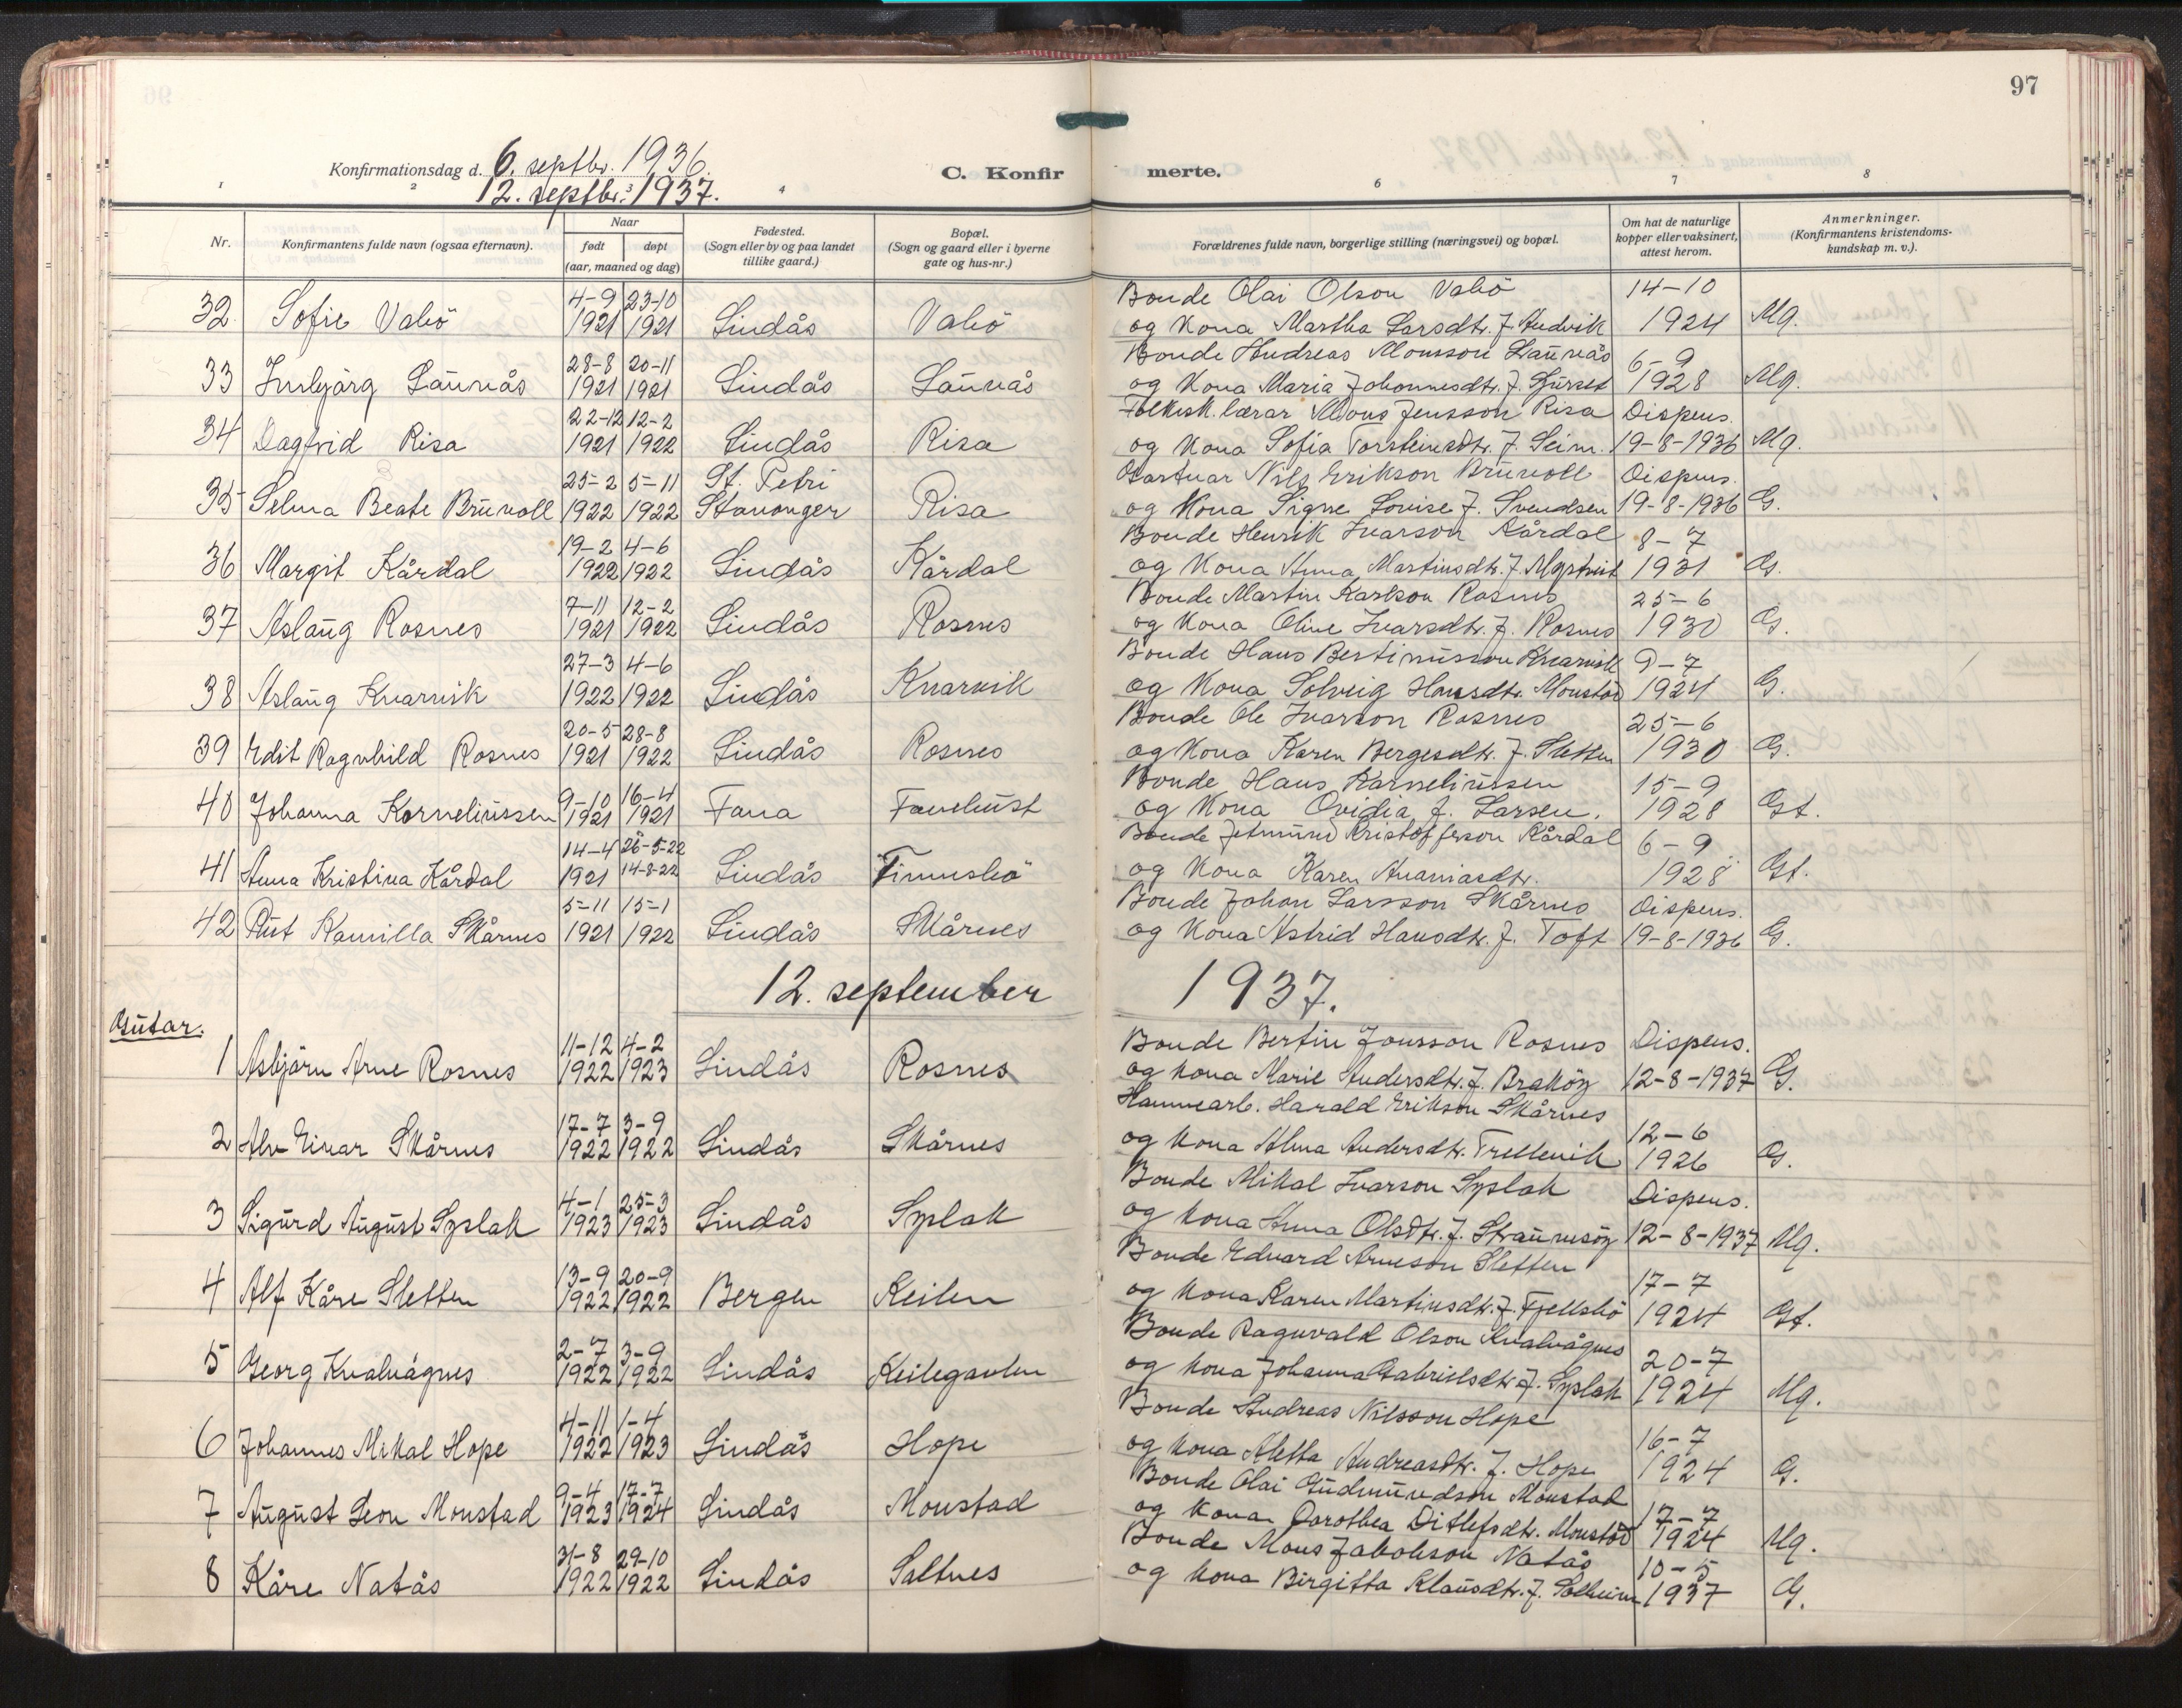 97
Konfirmationsdag d. 6. septbr. 1936.
12. septbr. 1937.
C. Konfirmerte.
1 2 3 4 6 7 8
Nr. Konfirmantens fulde navn (ogsaa efternavn). Naar født døpt (aar, maaned og dag) Fødested. (Sogn eller by og paa landet tillike gaard.) Bopæl. (Sogn og gaard eller i byerne gate og hus-nr.) Forældrenes fulde navn, borgerlige stilling (næringsvei) og bopæl. Om hat de naturlige kopper eller vaksinert, attest herom. Anmerkninger. (Konfirmantens kristendoms-kundskap m. v.).
4-9 23-10 Bonde Olai Olson Vabö 14-10
32. Sofie Vabö 1921 1921 Lindås Vabö og kona Martha Larsdtr. f. Andvik 1924 Mg.
28-8 20-11 Bonde Andreas Monsson Launås 6-9
33 Inbjørg Launås 1921 1921 Lindås Launås og kona Maria Johannesdtr. f. 1928 Mg.
22-12 12-2 Folkesk. lærar Mons Jensson Risa Dispens.
34 Dagfrid Risa 1921 1922 Lindås Risa og kona Sofia Torsteinsdtr. f. Seim. 19-8-1936 Mg.
25-2 5-11 St. Petri Gartnar Nils Erikson Bruvoll Dispens.
35 Selma Beate Bruvoll 1922 1922 Stavanger Risa og kona Signe Lovise f. Svendsen 19-8-1936 G.
19-2 4-6 Bonde Henrik Ivarson Kårdal 8-7
36 Margit Kårdal 1922 1922 Lindås Kårdal og kona Anna Martinsdtr. f. Myktveit 1931 G.
7-11 12-2 Bonde Martin Karlson Rosnes 25-6
37 Aslaug Rosnes 1921 1922 Lindås Rosnes og kona Oline Ivarsdtr. f. Rosnes 1930 G.
27-3 4-6 Bonde Hans Bertinusson Knarvik 9-7
38 Aslaug Knarvik 1922 1922 Lindås Knarvik og kona Solveig Hansdtr. Monstad 1924 G.
20-5 28-8 Bonde Ole Ivarson Rosnes 25-6
39 Edit Ragnhild Rosnes 1921 1922 Lindås Rosnes og kona Karen Bergesdtr. f. Sletten 1930 G.
9-10 16-4 Bonde Hans Karneliussen 15-9
40 Johanna Korneliussen 1921 1921 Fana Fanehust og kona Ovidia f. Larsen. 1928 Gt.
14-4 26-5-22 Bonde Jetmund Kristofferson Kårdal 6-9
41 Anna Kristina Kårdal 1921 14-8-22 Lindås Finnsbö og kona Karen Ananiasdtr. 1928 Gt.
5-11 15-1 Bonde Johan Larsson Skårnes Dispens.
42 Rut Kamilla Skårnes 1921 1922 Lindås Skårnes og kona Astrid Hansdtr. f. Toft 19-8-1936 G.
12. september 1937.
Gutar.
11-12 4-2 Bonde Bertin Jonsson Rosnes Dispens.
1 Asbjörn Arne Rosnes 1922 1923 Lindås Rosnes og kona Marie Andersdtr. f. Braköy 12-8-1937 G.
17-7 3-9 Hamnearb. Harald Erikson Skårnes 12-6
2 Alv Einar Skårnes 1922 1922 Lindås Skårnes og kona Alma Andersdtr. Trellevik 1926 G.
4-1 25-3 Bonde Mikal Ivarson Syslak Dispens.
3 Sigurd August Syslak 1923 1923 Lindås Syslak og kona Anna Olsdtr. f. Straumsöy 12-8-1937 Mg.
13-9 20-9 Bonde Edvard Arneson Sletten 17-7
4 Alf Kåre Sletten 1922 1922 Bergen Keilen og kona Karen Martinsdtr. f. Fjellsbö 1924 Gt.
2-7 3-9 Bonde Ragnvald Olson Kvalvågnes 20-7
5 Georg Kvalvågnes 1922 1922 Lindås Keilegavlen og kona Johanna Gabrielsdtr. f. Syslak 1924 Mg.
4-11 1-4 Bonde Andreas Nilsson Hope 16-7
6 Johannes Mikal Hope 1922 1923 Lindås Hope og kona Aletta Andreasdtr. f. Hope 1924 G.
9-4 17-7 Bonde Olai Gudmundson Monstad 17-7
7 August Leon Monstad 1923 1924 Lindås Monstad og kona Dorothea Ditlefsdtr. Monstad 1924 Mg.
31-8 29-10 Bonde Mons Jakobson Natås 10-5
8 Kåre Natås 1922 1922 Lindås Saltnes og kona Birgitta Klausdtr. f. Solheim 1937 G.